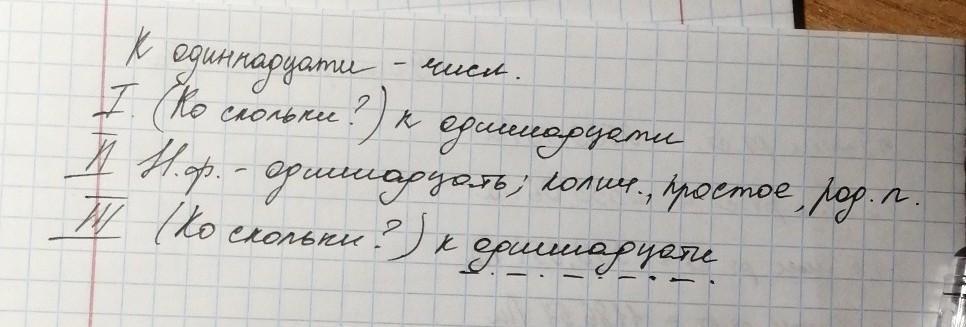 К одиннадцати – числ.
I. (Ко скольки?) к одиннадцати
II Н.ф. – одиннадцать; колич., простое, род. п.
III (Ко скольки?) к одиннадцати